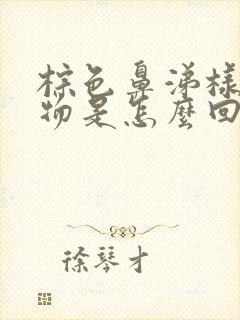 棕色鼻涕樣
物是怎麼回
徐琴才